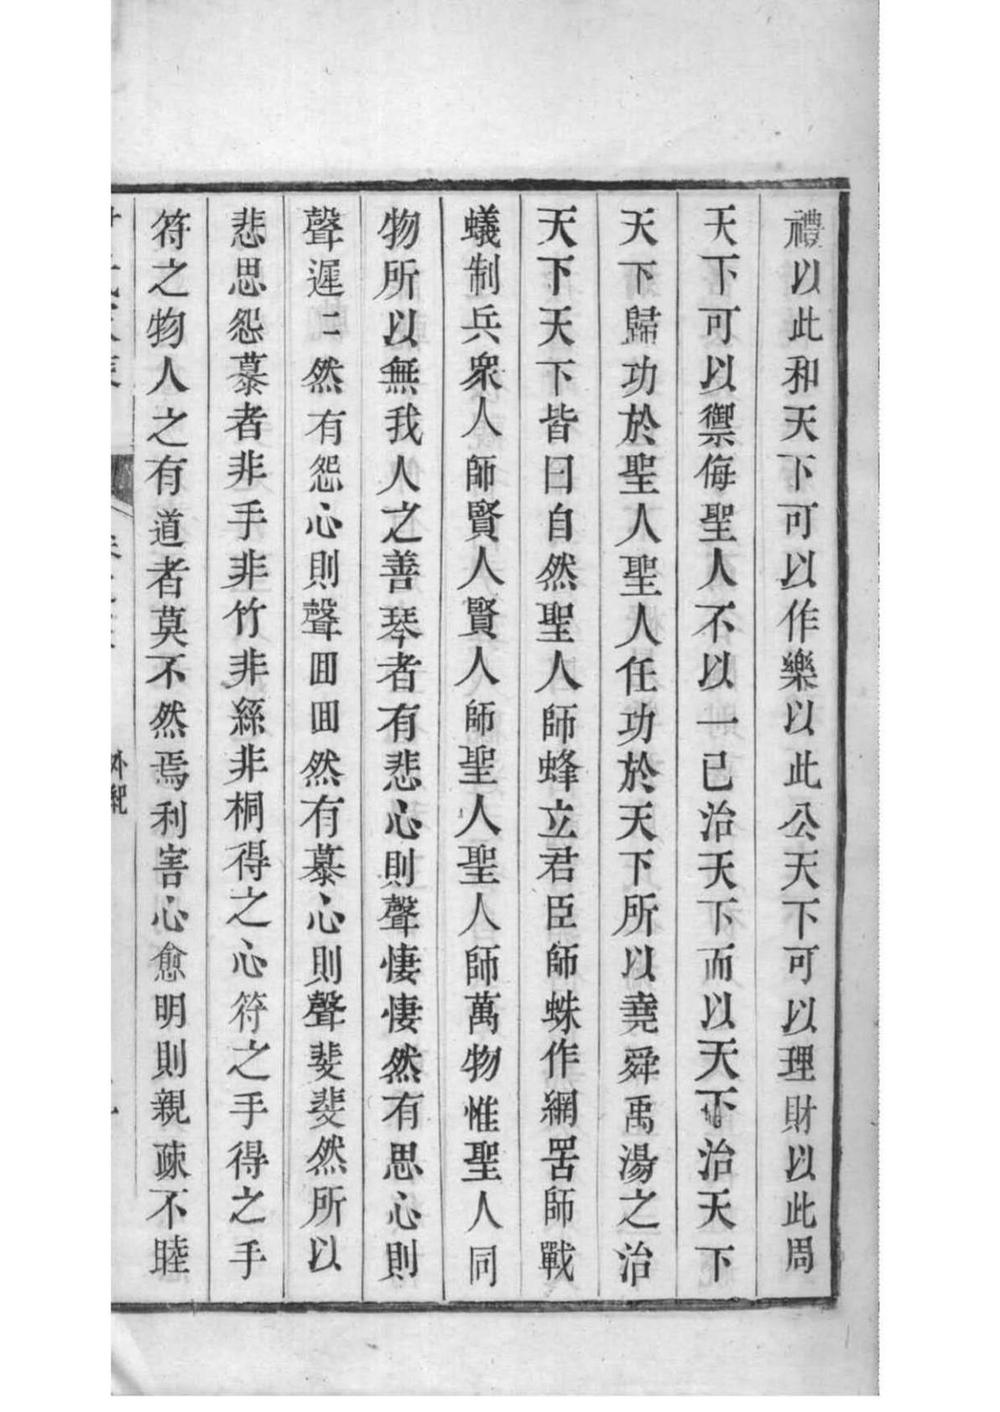 禮以此和天下可以作樂以此公天下可以理財以此周
天下可以禦侮聖人不以一己治天下而以天下治天下
天下歸功於聖人聖人任功於天下所以堯舜禹湯之治
天下天下皆曰自然聖人師蜂立君臣師蛛作網罟師戰
蟻制兵衆人師賢人賢人師聖人聖人師萬物惟聖人同
物所以無我人之善琴者有悲心則聲悽悽然有思心則
聲遲二然有怨心則聲囬囬然有慕心則聲斐斐然所以
悲思怨慕者非手非竹非絲非桐得之心符之手得之手
符之物人之有道者莫不然焉利害心愈明則親疎不睦
外紀